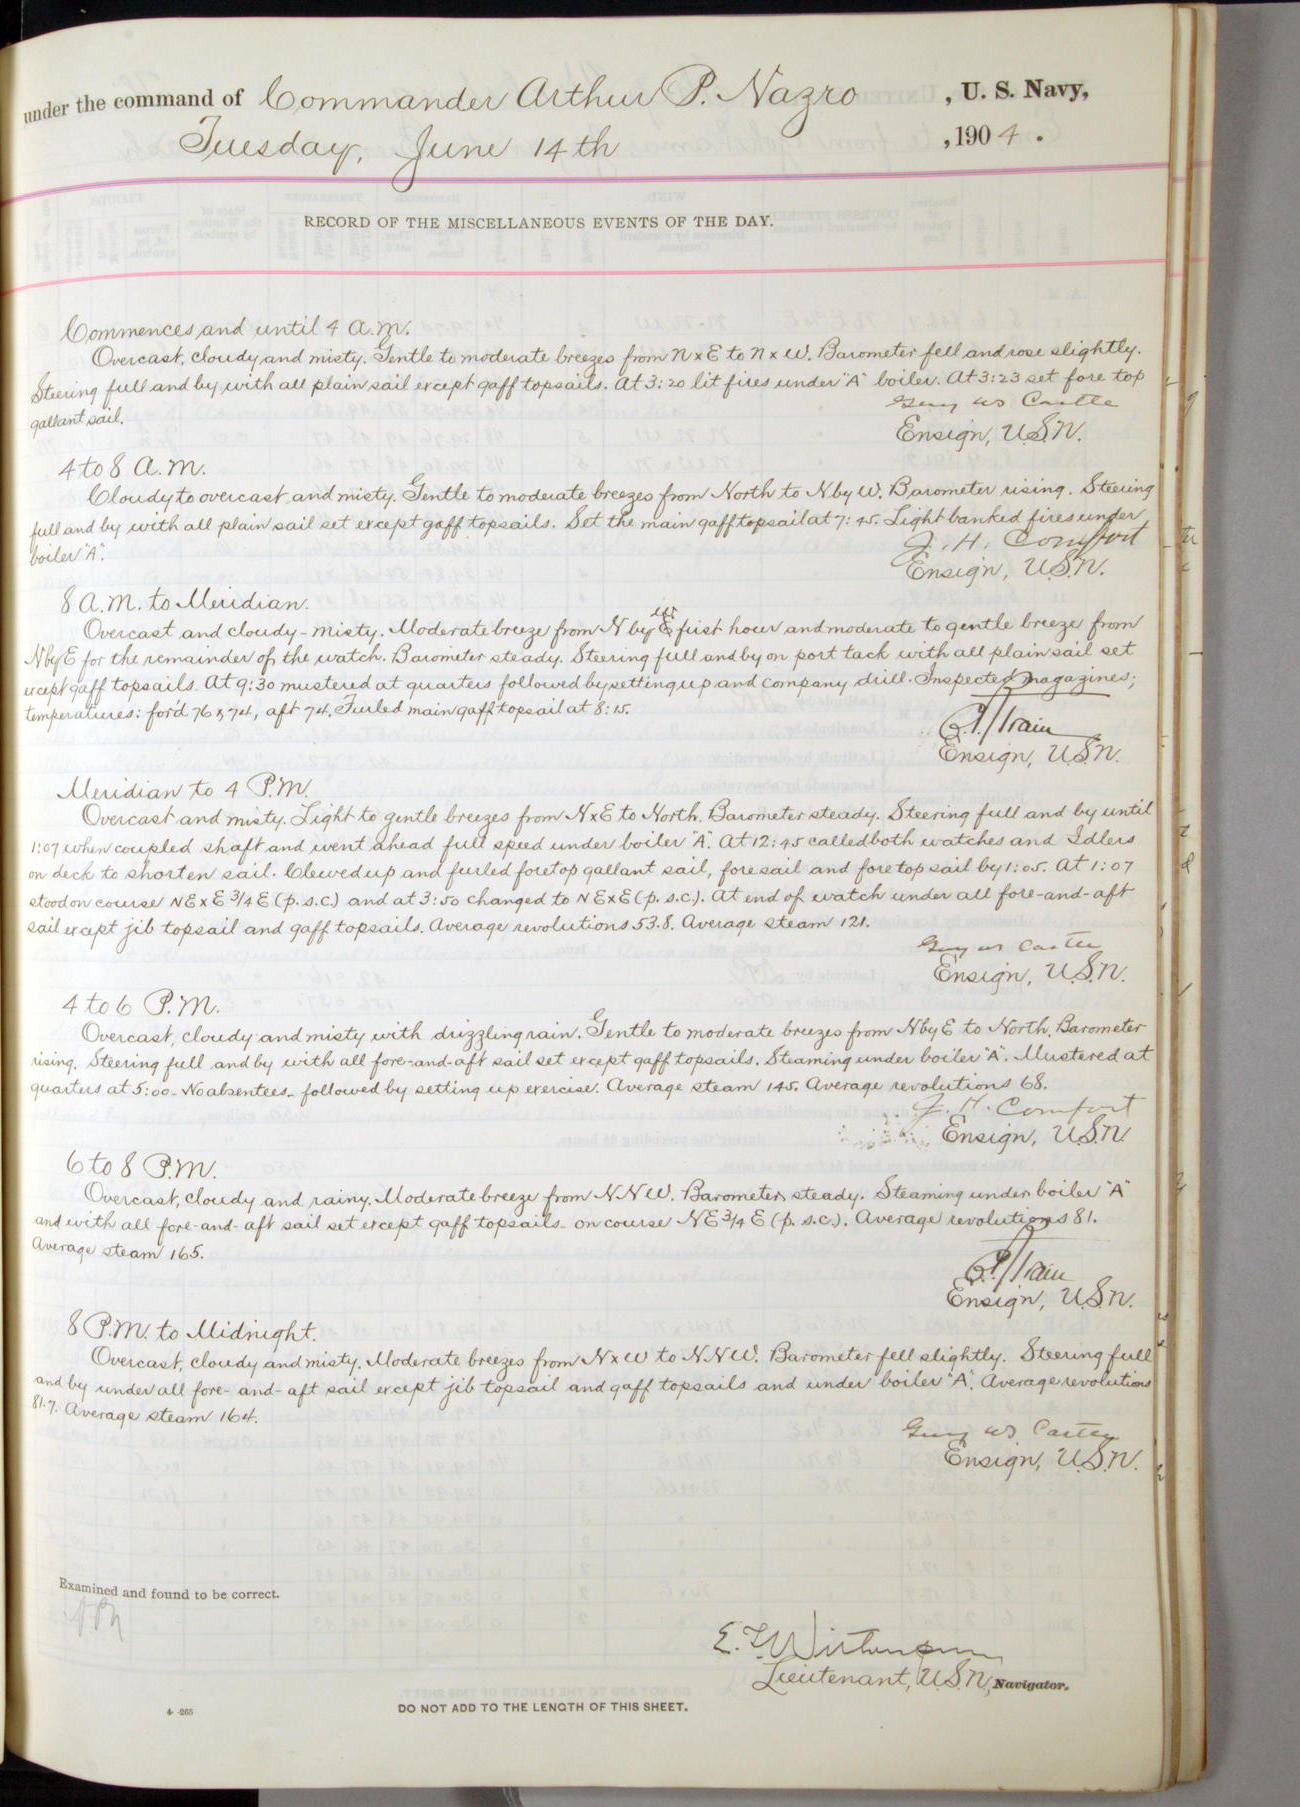 under the command of Commander Arthur P. Nazro, U. S. Navy,
Tuesday, June 14th, 1904.
RECORD OF THE MISCELLANEOUS EVENTS OF THE DAY.
Commences and until 4 A.M.
Overcast, cloudy and misty. Gentle to moderate breezes from N x E to N x W. Barometer fell and rose slightly.
Steering full and by with all plain sail except gaff topsails. At 3:20 lit fires under "A" boiler. At 3:23 set fore top
gallant sail.
Guy W Castle
Ensign, U.S.N.
4 to 8 A.M.
Cloudy to overcast and misty. Gentle to moderate breezes from North to N by W. Barometer rising. Steering
full and by with all plain sail set except gaff topsails. Set the main gaff topsail at 7:45. Light banked fires under
boiler "A".
J. H. Comfort
Ensign, U.S.N.
8 A.M. to Meridian.
Overcast and cloudy - misty. Moderate breeze from N by W E first hour and moderate to gentle breeze from
N by E for the remainder of the watch. Barometer steady. Steering full and by on port tack with all plain sail set
except gaff topsails. At 9:30 mustered at quarters followed by setting up and company drill. Inspected magazines;
temperatures: for'd 76 & 74, aft 74. Furled main gaff topsail at 8:15.
Train
Ensign, U.S.N.
Meridian to 4 P.M.
Overcast and misty. Light to gentle breezes from N x E to North. Barometer steady. Steering full and by until
1:07 when coupled shaft and went ahead full speed under boiler "A". At 12:45 called both watches and Idlers
on deck to shorten sail. Clewed up and furled foretop gallant sail, foresail and fore top sail by 1:05. At 1:07
stood on course NE x E 3/4 E (p.s.c.) and at 3:50 changed to NE x E (p.s.c.). At end of watch under all fore-and-aft
sail except jib topsail and gaff topsails. Average revolutions 53.8. Average steam 121.
Guy W Castle
Ensign, U.S.N.
4 to 6 P.M.
Overcast, cloudy and misty with drizzling rain. Gentle to moderate breezes from N by E to North. Barometer
rising. Steering full and by with all fore-and-aft sail set except gaff topsails. Steaming under boiler "A". Mustered at
quarters at 5:00 - No absentees - followed by setting up exercise. Average steam 145. Average revolutions 68.
J. H. Comfort
Ensign, U.S.N.
6 to 8 P.M.
Overcast, cloudy and rainy. Moderate breeze from NNW. Barometer steady. Steaming under boiler "A"
and with all fore-and-aft sail set except gaff topsails - on course NE 3/4 E (p.s.c.). Average revolutions 81.
Average steam 165.
Train
Ensign, U.S.N.
8 P.M. to Midnight.
Overcast, cloudy and misty. Moderate breezes from N x W to NNW. Barometer fell slightly. Steering full
and by under all fore-and-aft sail except jib topsail and gaff topsails and under boiler "A". Average revolutions
81.7. Average steam 164.
Guy W Castle
Ensign, U.S.N.
Examined and found to be correct.
Lieutenant, U.S.N., Navigator.
DO NOT ADD TO THE LENGTH OF THIS SHEET.